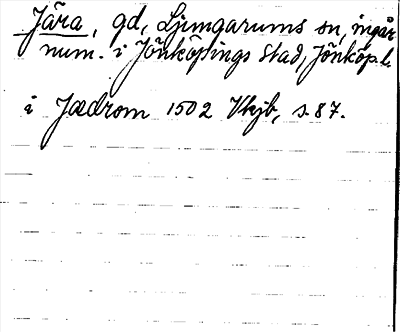 Jära, gd, Ljungarums sn, ingår
num. i Jönköpings stad, Jönköp. l.
i Jædrom 1502 Vkjb, s. 87.